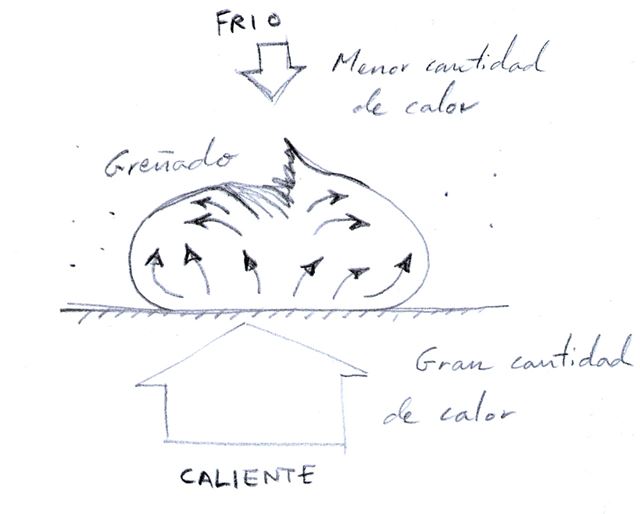 FRIO
Menor cantidad
de calor
Greñado
Gran cantidad
de calor
CALIENTE